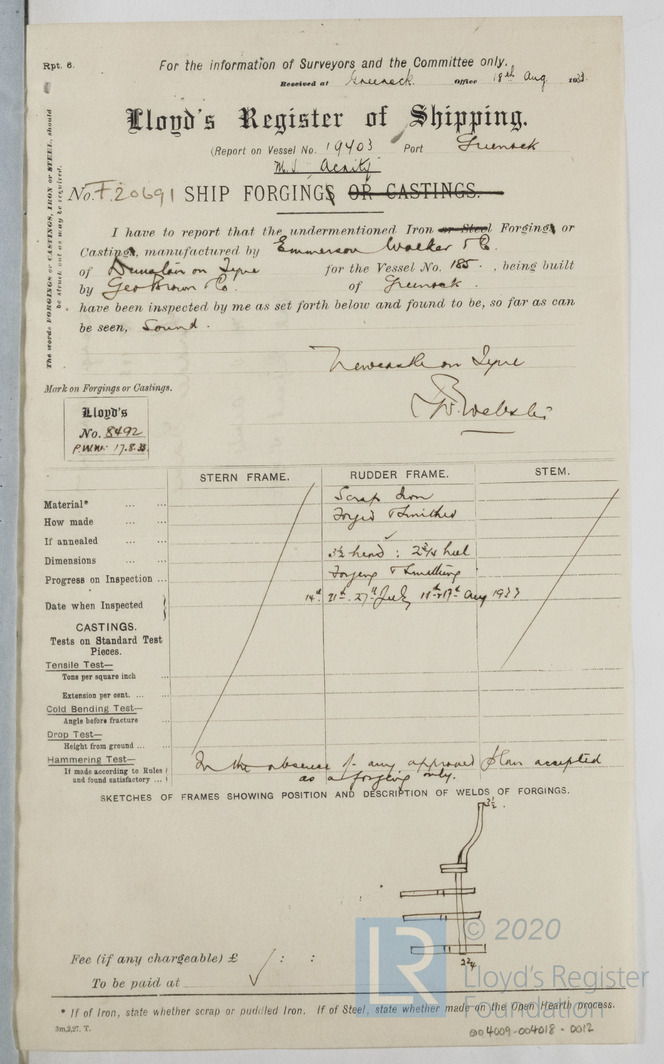 Rpt. 6.
For the information of Surveyors and the Committee only.
Received at Greenock Office 18th Aug 1933
Lloyd's Register of Shipping.
(Report on Vessel No. 19403 Port Greenock
M.S. Acrity
No. F.20691 SHIP FORGINGS OR CASTINGS.
The words FORGINGS or CASTINGS, IRON or STEEL, should
be struck out as may be required.
I have to report that the undermentioned Iron or Steel Forgings or
Castings, manufactured by Emmerson Walker & Co.
of Dunston on Tyne for the Vessel No. 185., being built
by Geo Brown & Co. of Greenock.
have been inspected by me as set forth below and found to be, so far as can
be seen, Sound.
Newcastle on Tyne
P.W. Webster
Mark on Forgings or Castings.
Lloyd's
No. 8492
P.W.W. 17.8.33.
STERN FRAME. RUDDER FRAME. STEM.
Material* ... ... Scrap Iron
How made ... ... Forged & Smithed
If annealed ... ... ✓
Dimensions ... ... 3½ head : 2¾ heel
Progress on Inspection ... Forging & Smithing
Date when Inspected 14th 21st. 27th July 11th & 17th Aug 1933
CASTINGS.
Tests on Standard Test
Pieces.
Tensile Test—
Tons per square inch ...
Extension per cent. ... ...
Cold Bending Test—
Angle before fracture ...
Drop Test—
Height from ground ... ...
Hammering Test—
If made according to Rules
and found satisfactory ...
In the absence of any approved plan accepted
as a forging only.
SKETCHES OF FRAMES SHOWING POSITION AND DESCRIPTION OF WELDS OF FORGINGS.
3½.
2¾
Fee (if any chargeable) £ / : :
To be paid at ✓
* If of Iron, state whether scrap or puddled Iron. If of Steel, state whether made on the Open Hearth process.
3m,2,27. T.
LR
© 2020
Lloyd's Register
Foundation
004009-004018-0012